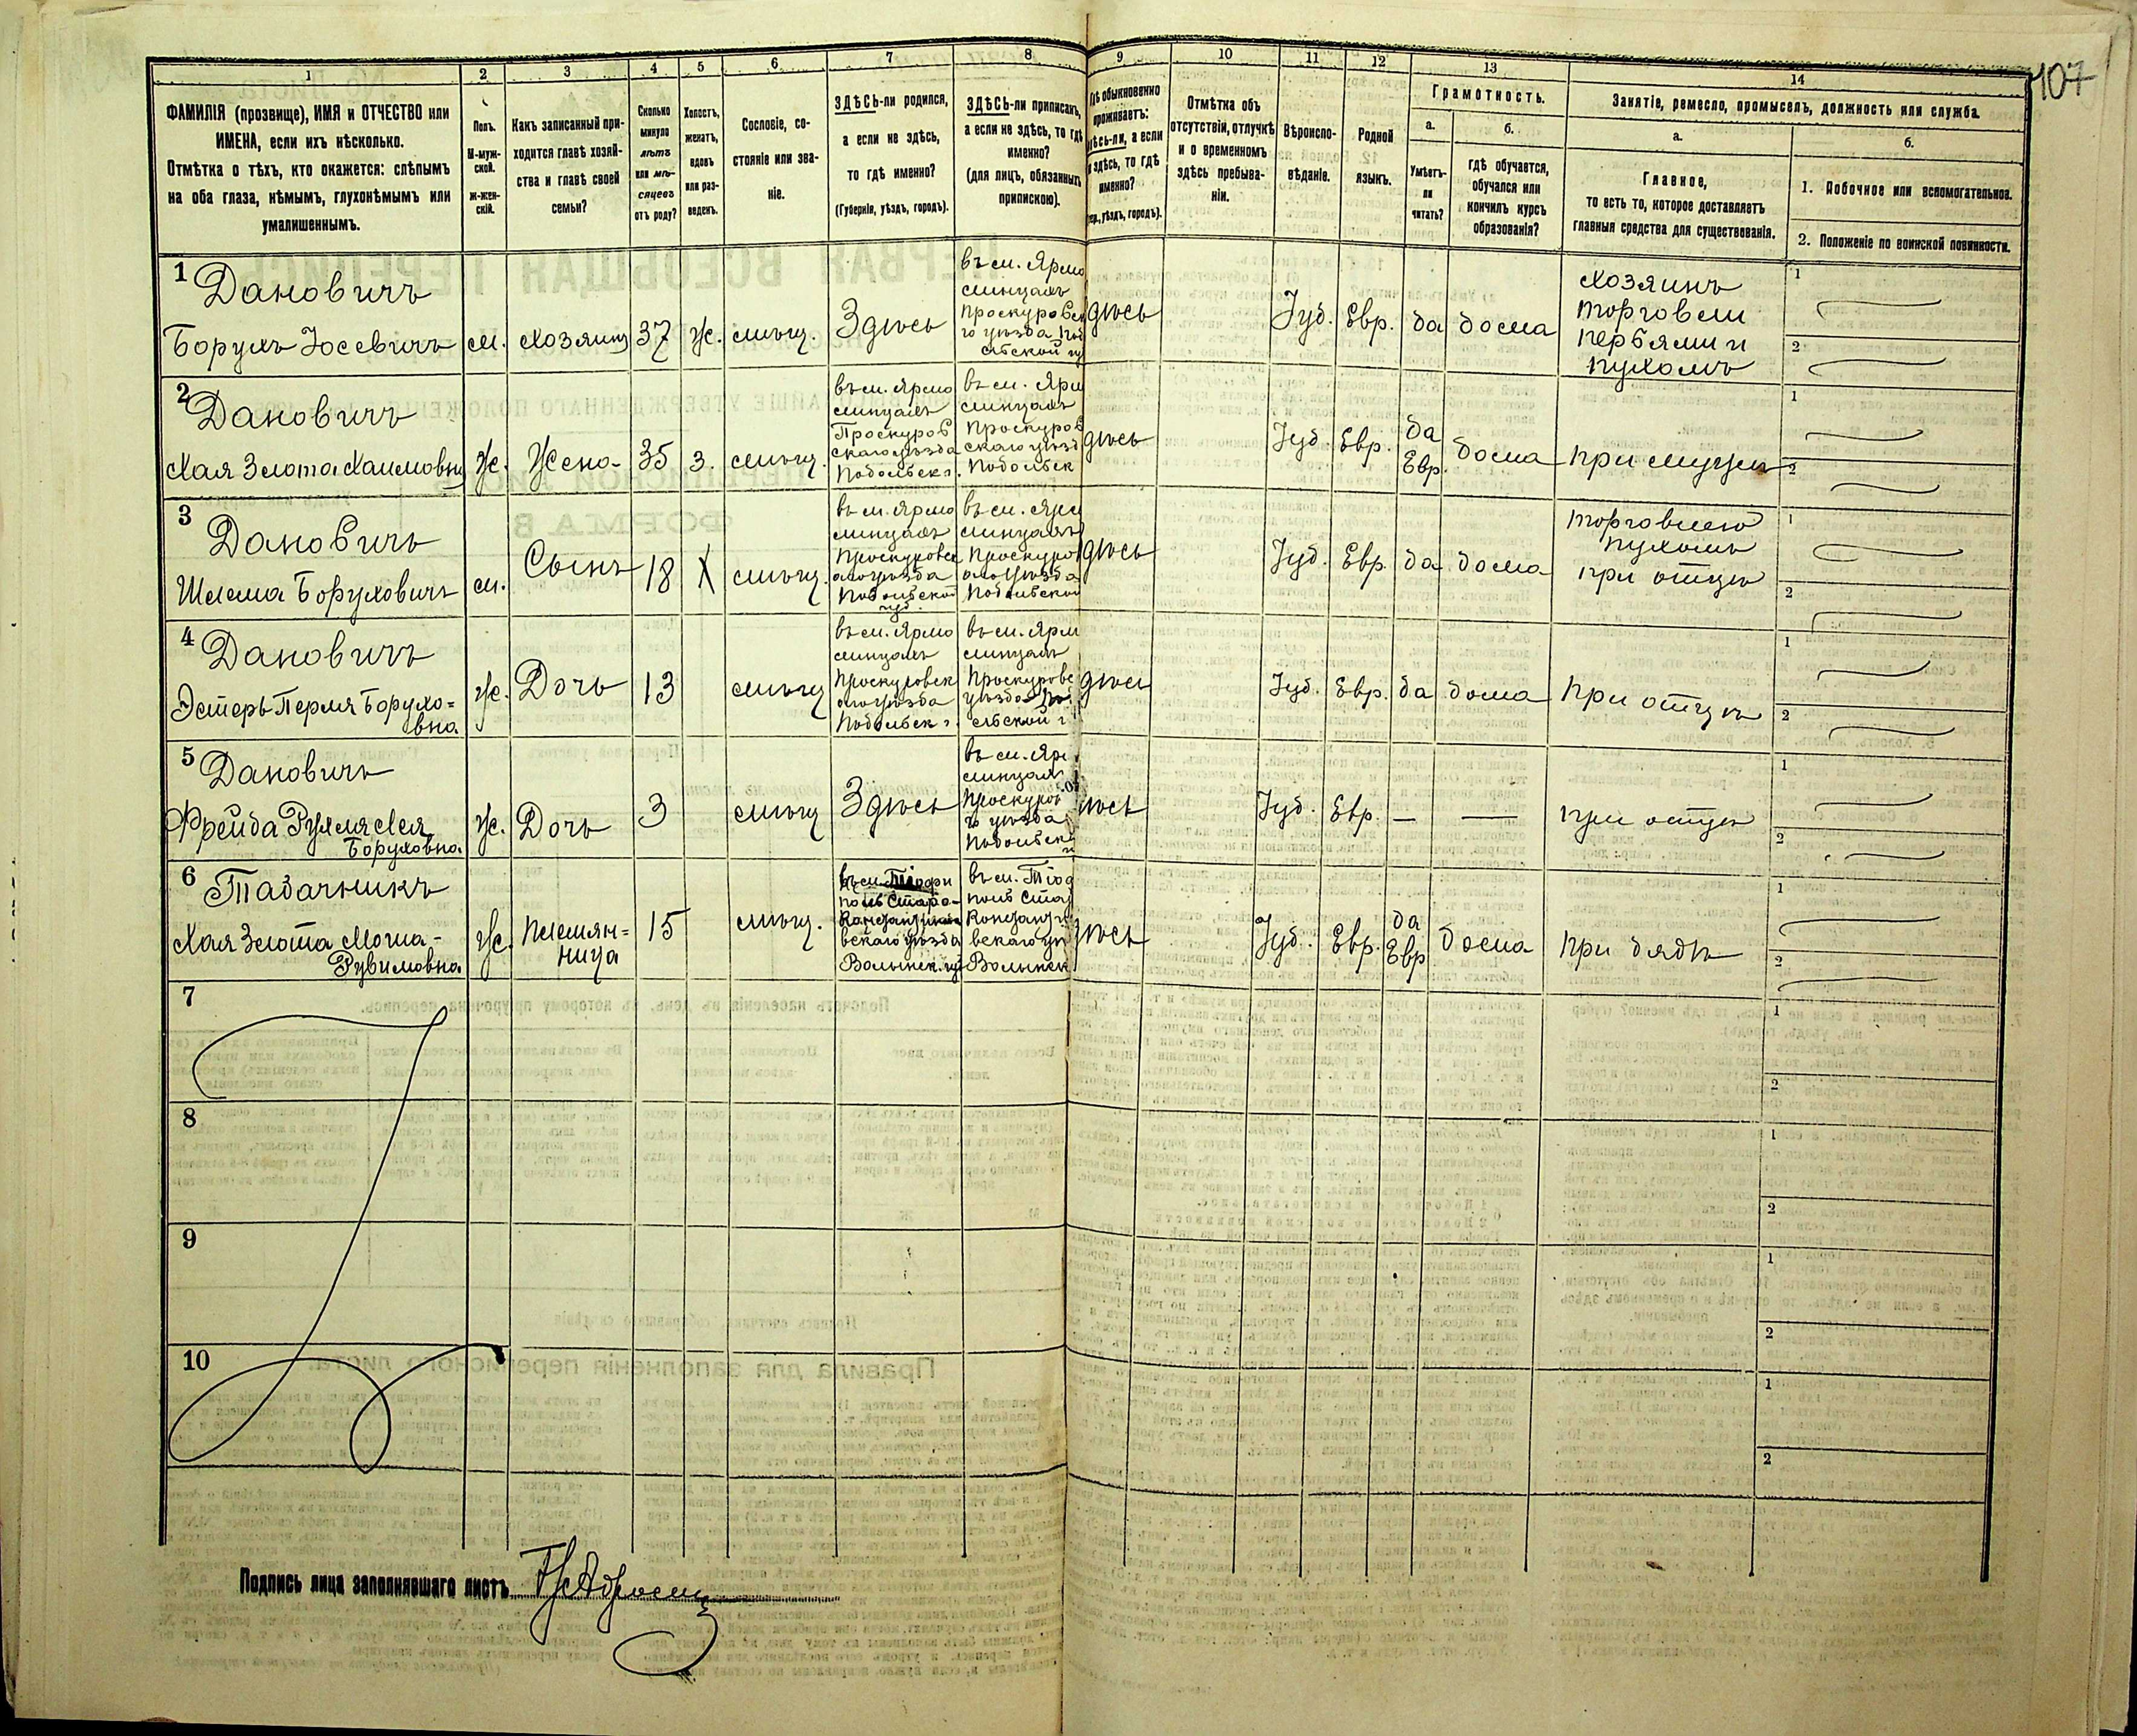 107
1 2 3 4 5 6 7 8 9 10 11 12 13 14
ФАМИЛІЯ (прозвище), ИМЯ и ОТЧЕСТВО или
ИМЕНА, если ихъ нѣсколько.
Отмѣтка о тѣхъ, кто окажется: слѣпымъ
на оба глаза, нѣмымъ, глухонѣмымъ или
умалишеннымъ.
Полъ.
М-муж-
ской.
Ж-жен-
скій.
Какъ записанный при-
ходится главѣ хозяй-
ства и главѣ своей
семьи?
Сколько
минуло
лѣтъ
или мѣ-
сяцевъ
отъ роду?
Холостъ,
женатъ,
вдовъ
или раз-
веденъ.
Сословіе, со-
стояніе или зва-
ніе.
ЗДѢСЬ-ли родился,
а если не здѣсь,
то гдѣ именно?
(Губернія, уѣздъ, городъ).
ЗДѢСЬ-ли приписанъ,
а если не здѣсь, то гдѣ
именно?
(для лицъ, обязанныхъ
припискою).
Гдѣ обыкновенно
проживаетъ:
здѣсь-ли, а если
не здѣсь, то гдѣ
именно?
(Губ., уѣздъ, городъ).
Отмѣтка объ
отсутствіи, отлучкѣ
и о временномъ
здѣсь пребыва-
ніи.
Вѣроиспо-
вѣданіе.
Родной
языкъ.
Грамотность.
а.
Умѣетъ-
ли
читать?
б.
гдѣ обучается,
обучался или
кончилъ курсъ
образованія?
Занятіе, ремесло, промыселъ, должность или служба.
а.
Главное,
то есть то, которое доставляетъ
главныя средства для существованія.
б.
1. Побочное или вспомогательное.
2. Положеніе по воинской повинности.
1
Дановичъ
Борухъ Іосевичъ
м.
хозяинъ
37
ж.
мѣщ.
Здѣсь
въ м. Ярмо
линцахъ
Проскуровск
го уѣзда
дѣсь
Іуд.
Евр.
да
дома
хозяинъ
торговли
перьями и
пухомъ
1
2
2
Дановичъ
Хая Злота Хаимовна
ж.
Жена
35
з.
мѣщ.
въ м. Ярмо
линцахъ
Проскуров
скаго уѣзда
Подольск г.
въ м. Ярм
линцахъ
Проскуров
скаго уѣзд
Подольск
дѣсь
Іуд.
Евр.
да
Евр.
дома
при мужѣ
1
2
3
Дановичъ
Шлема Боруховичъ
м.
Сынъ
18
х
мѣщ.
въ м. Ярмо
линцахъ
Проскуровск
аго уѣзда
Подольской
губ.
въ м. Ярм
линцахъ
Проскуров
аго уѣзда
Подольской
дѣсь
Іуд.
Евр.
да
дома
торговлею
пухомъ
при отцѣ
1
2
4
Дановичъ
Эстеръ Перля Борухо=
вна
ж.
Дочь
13
мѣщ
въ м. Ярмо
линцахъ
Проскуровск
аго уѣзда
Подольск г.
въ м. Ярм
линцахъ
Проскуровс
уѣзда Под
ольской г
дѣсь
Іуд.
Евр.
да
дома
При отцѣ
1
2
5
Дановичъ
Фрейда Рухля Лея
Боруховна
ж.
Дочь
3
мѣщ
Здѣсь
въ м. Яр
линцах
Проскуров
го уѣзда
Подольск
ѣсь
Іуд.
Евр.
—
—
при отцѣ
1
2
6
Табачникъ
Хая Злота Моша-
Рувимовна
ж.
племян=
ница
15
мѣщ.
въ м. Теофи
поль Старо-
Константино
вскаго уѣзда
Волынск. гу
въ м. Теоф
поль Стар
Констант
вскаго уѣ
Волынск
ѣсь
Іуд.
Евр.
да
Евр
дома
при дядѣ
1
2
7
1
2
8
1
2
9
1
2
10
1
2
Подпись лица заполнявшаго листъ